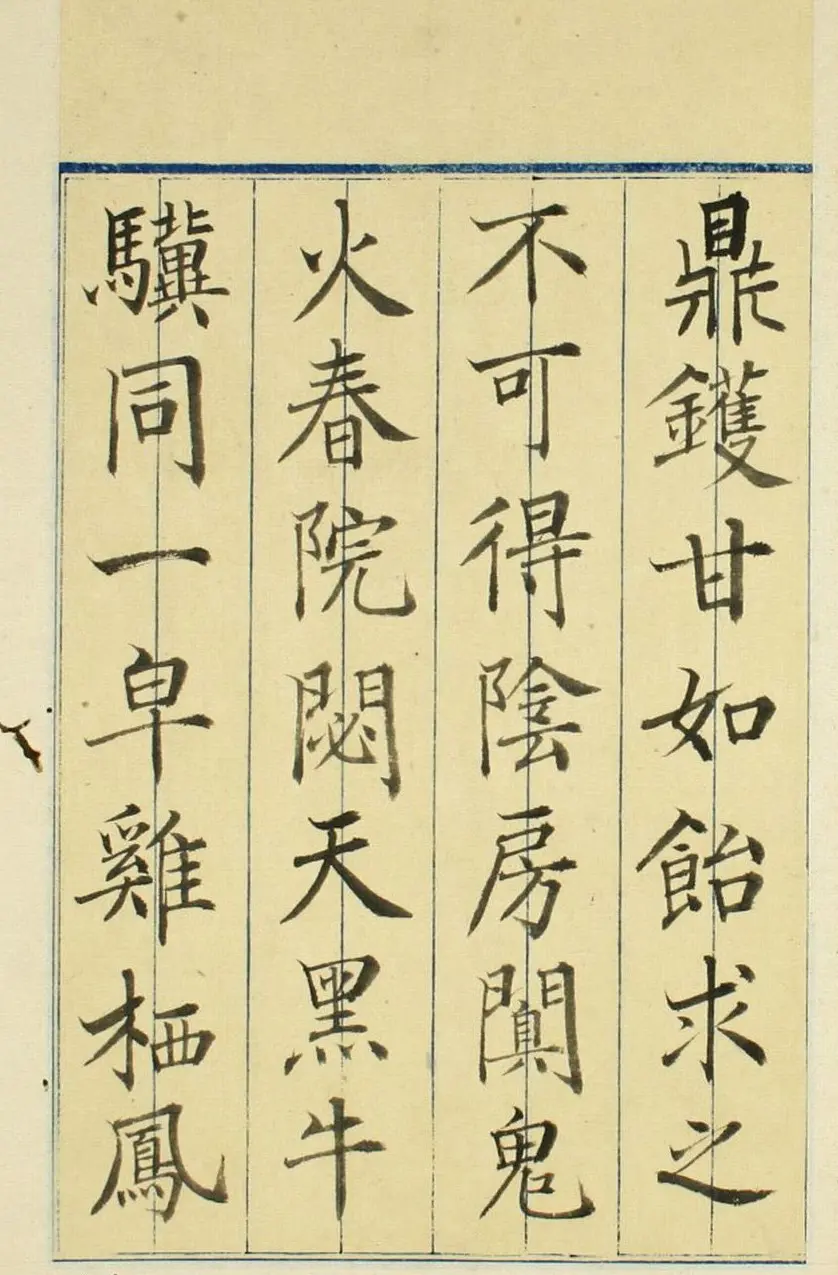 鼎鑊甘如飴求之
不可得陰房闃鬼
火春院閟天黑牛
驥同一皁雞栖鳳